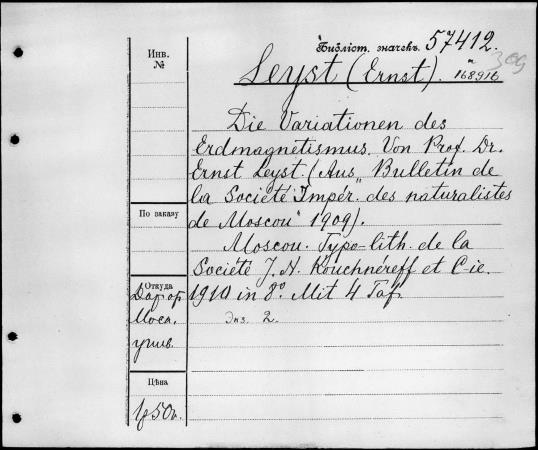 Библіот. значекъ 57412.
Инв.
№
Leyst (Ernst).
Die Variationen des
Erdmagnetismus. Von Prof. Dr.
Ernst Leyst. (Aus „Bulletin de
la Société Impér. des naturalistes
de Moscou" 1909).
По заказу
Moscou. Typo-lith. de la
Société J. N. Kouchnéreff et C-ie.
Откуда
1910 in 8° Mit 4 Taf.
Даръ от
Моск.
унив.
Экз. 2.
Цѣна
1р50к.